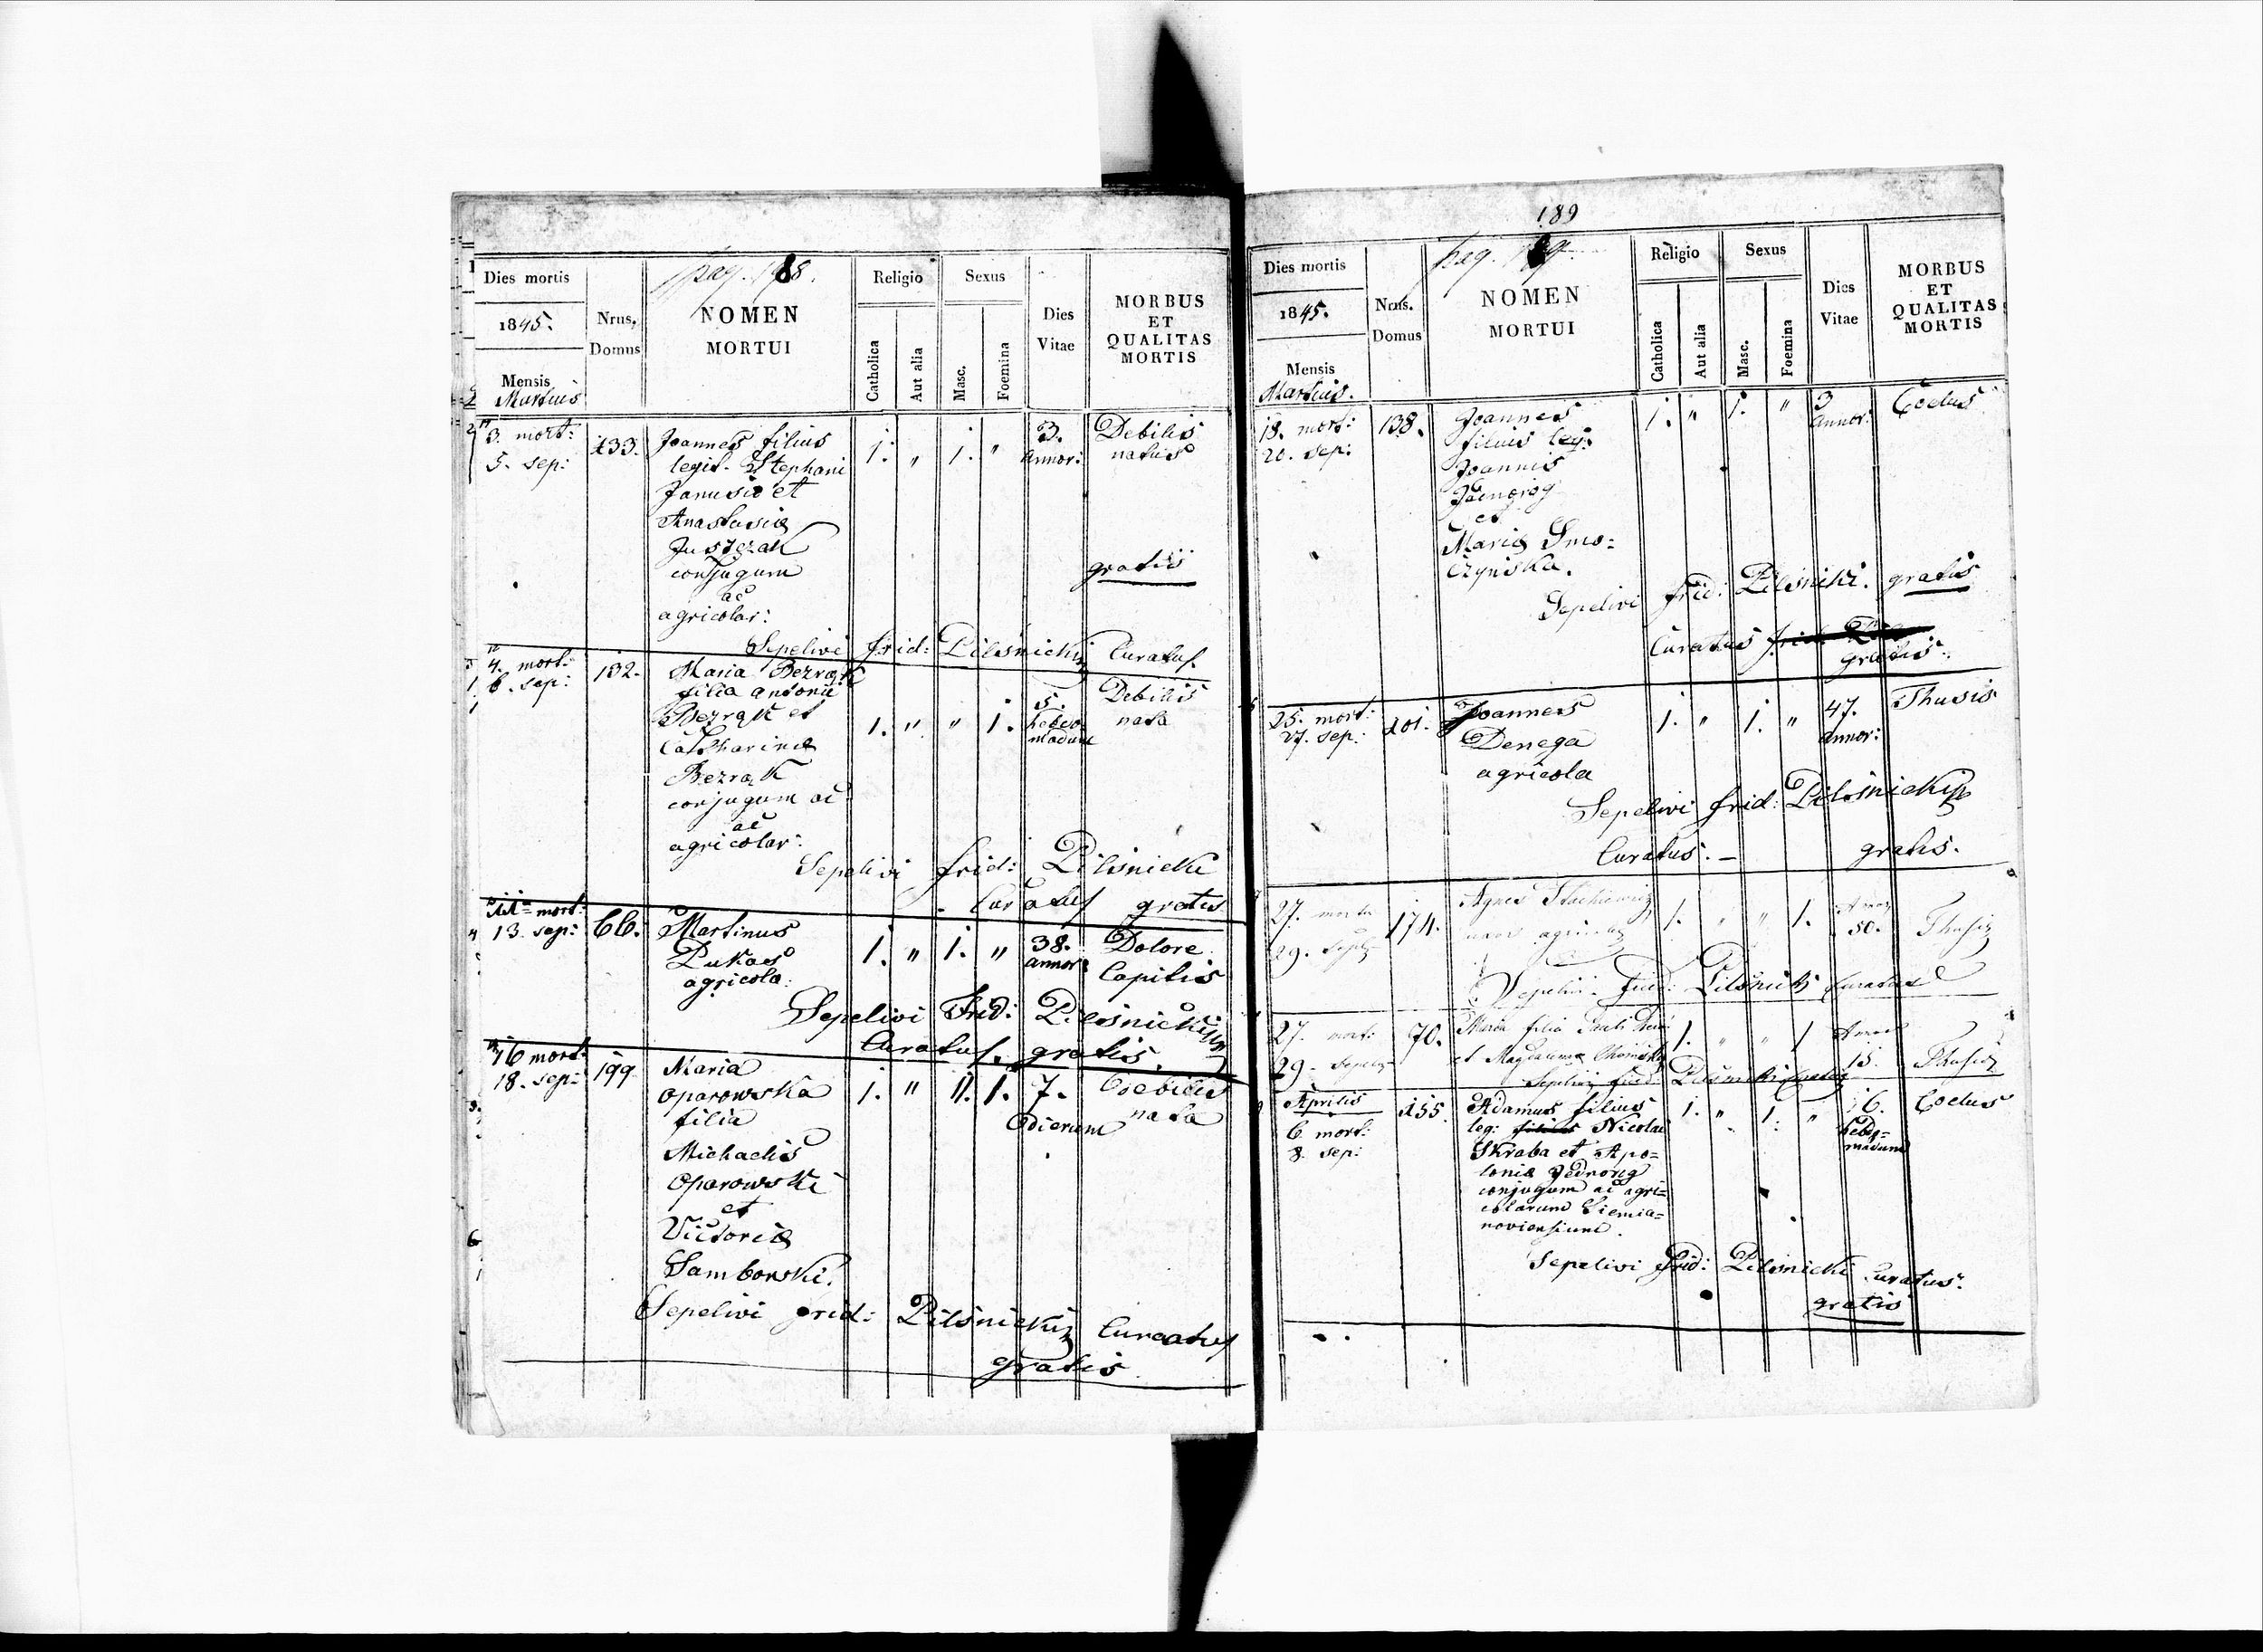 pag. 188.
Dies mortis
1845.
Mensis
Martius
Nrus. Domus
NOMEN
MORTUI
Religio
Catholica
Aut alia
Sexus
Masc.
Foemina
Dies
Vitae
MORBUS
ET
QUALITAS
MORTIS
3. mort: 133. Joannes filius 1. " 1. " 3. Debilis
5. sep: legit. Stephani annor: natus
Janusio et
Anastasiæ
Juszczak
conjugum gratis
ac
agricolar:
Sepelivi frid: Pilsnicki Curatus
4. mort: 132. Maria Bezrąk
6. sep: filia Antonii 5. Debilis
Bezrąk et 1. " " 1. hebdo- nata
Catharinæ madum
Bezrąk
conjugum ac
ac
agricolar:
Sepelivi frid: Pilsnicki
Curatus gratis
11 mort: 66. Martinus 1. " 1. " 38. Dolore
13. sep: Pukas annor: Capitis
agricola:
Sepelivi Frid: Pilsnicki
Curatus. gratis.
16 mort: 199 Maria
18. sep: Oparowska 1. " 11. 1. 7. Debilis
filia dierum nata
Michaelis
Oparowski
et
Victoriæ
Samborski.
Sepelivi frid: Pilsnicki Curatus
gratis
189
pag. 189
Dies mortis
1845.
Mensis
Martius.
Nrus.
Domus
NOMEN
MORTUI
Religio
Catholica
Aut alia
Sexus
Masc.
Foemina
Dies
Vitae
MORBUS
ET
QUALITAS
MORTIS
18. mort: 138. Joannes 1. " 1. " 3 
20. sep: filius leg: annor:
Joannis
et
Mariæ Smo=
czyńska.
Sepelivi frid: Pilsnicki. gratis
Curatus
gratis.
25. mort: 201. Joannes 1. " 1. " 47. Thusis
27. sep: Denega annor:
agricola
Sepelivi frid: Pilsnicki
Curatus. — gratis.
27. mort 174. Agnes 1. " " 1. 50.
29. uxor agricolæ
Sepelivi Frid: Pilsnicki Curatus
27. mort: 70. Maria filia Pauli 1. " " 1
29. et Magdalena 15.
Sepelivi frid: Pilsnicki
Aprilis 155 Adamus filius 1. " 1. " 6.
6 mort: leg: Nicolai hebdo=
8. sep: Skraba et Apo= madum
loniæ Jednorog
conjugum ac agri=
colarum Siemia=
noviensium.
Sepelivi Frid: Pilsnicki Curatus.
gratis